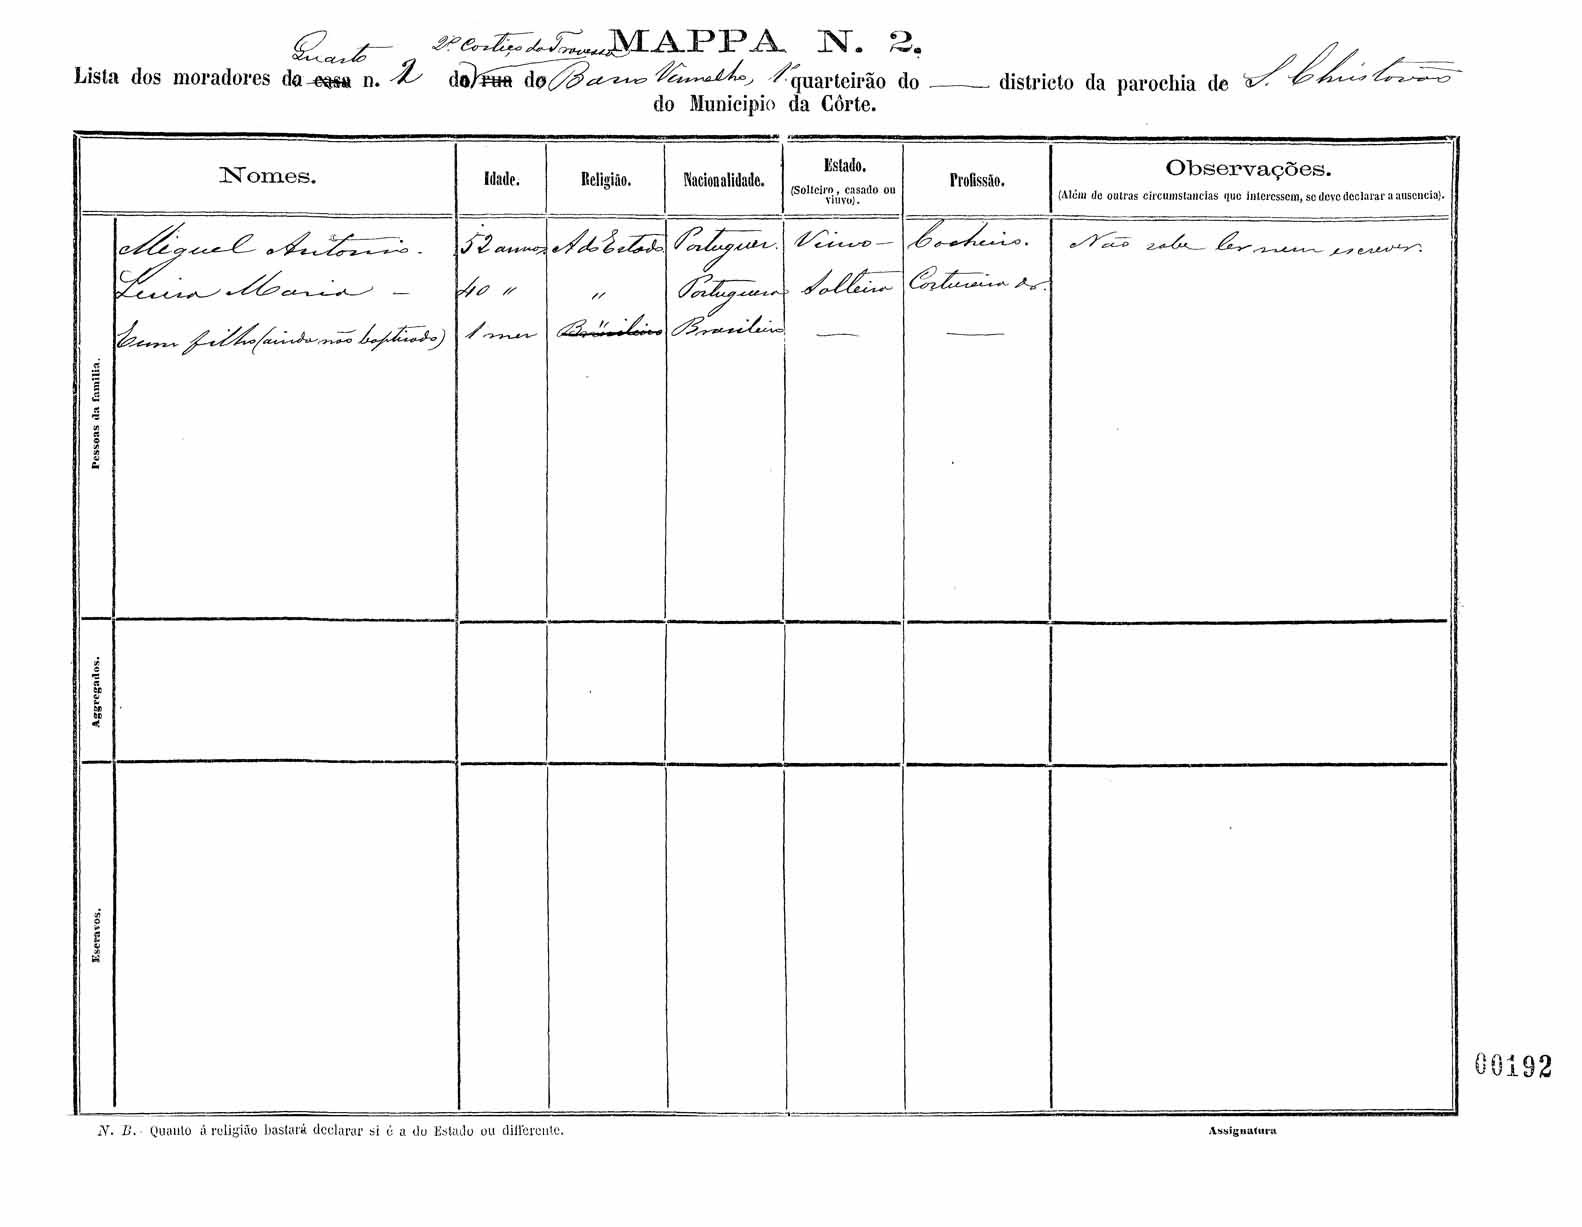 Quarto 2º Cortiço da Travessa MAPPA N. 2.
Lista dos moradores da casa n. 2 da rua do Barro Vermelho, 1º quarteirão do —— districto da parochia de S. Christovão
do Municipio da Côrte.
Nomes. Idade. Religião. Nacionalidade. Estado. (Solteiro, casado ou viuvo). Profissão. Observações. (Além de outras circumstancias que interessem, se deve declarar a ausencia).
Pessoas da familia.
Miguel Antonio. 52 annos A do Estado Portuguez. Viuvo — Cocheiro. Não sabe ler nem escrever.
Luiza Maria — 40 " " Portugueza Solteira Costureira
E um filho (ainda não baptizado) 1 mez " Brasileiro Brasileiro — —
Aggregados.
Escravos.
00192
N. B. - Quanto á religião bastará declarar si é a do Estado ou differente.
Assignatura